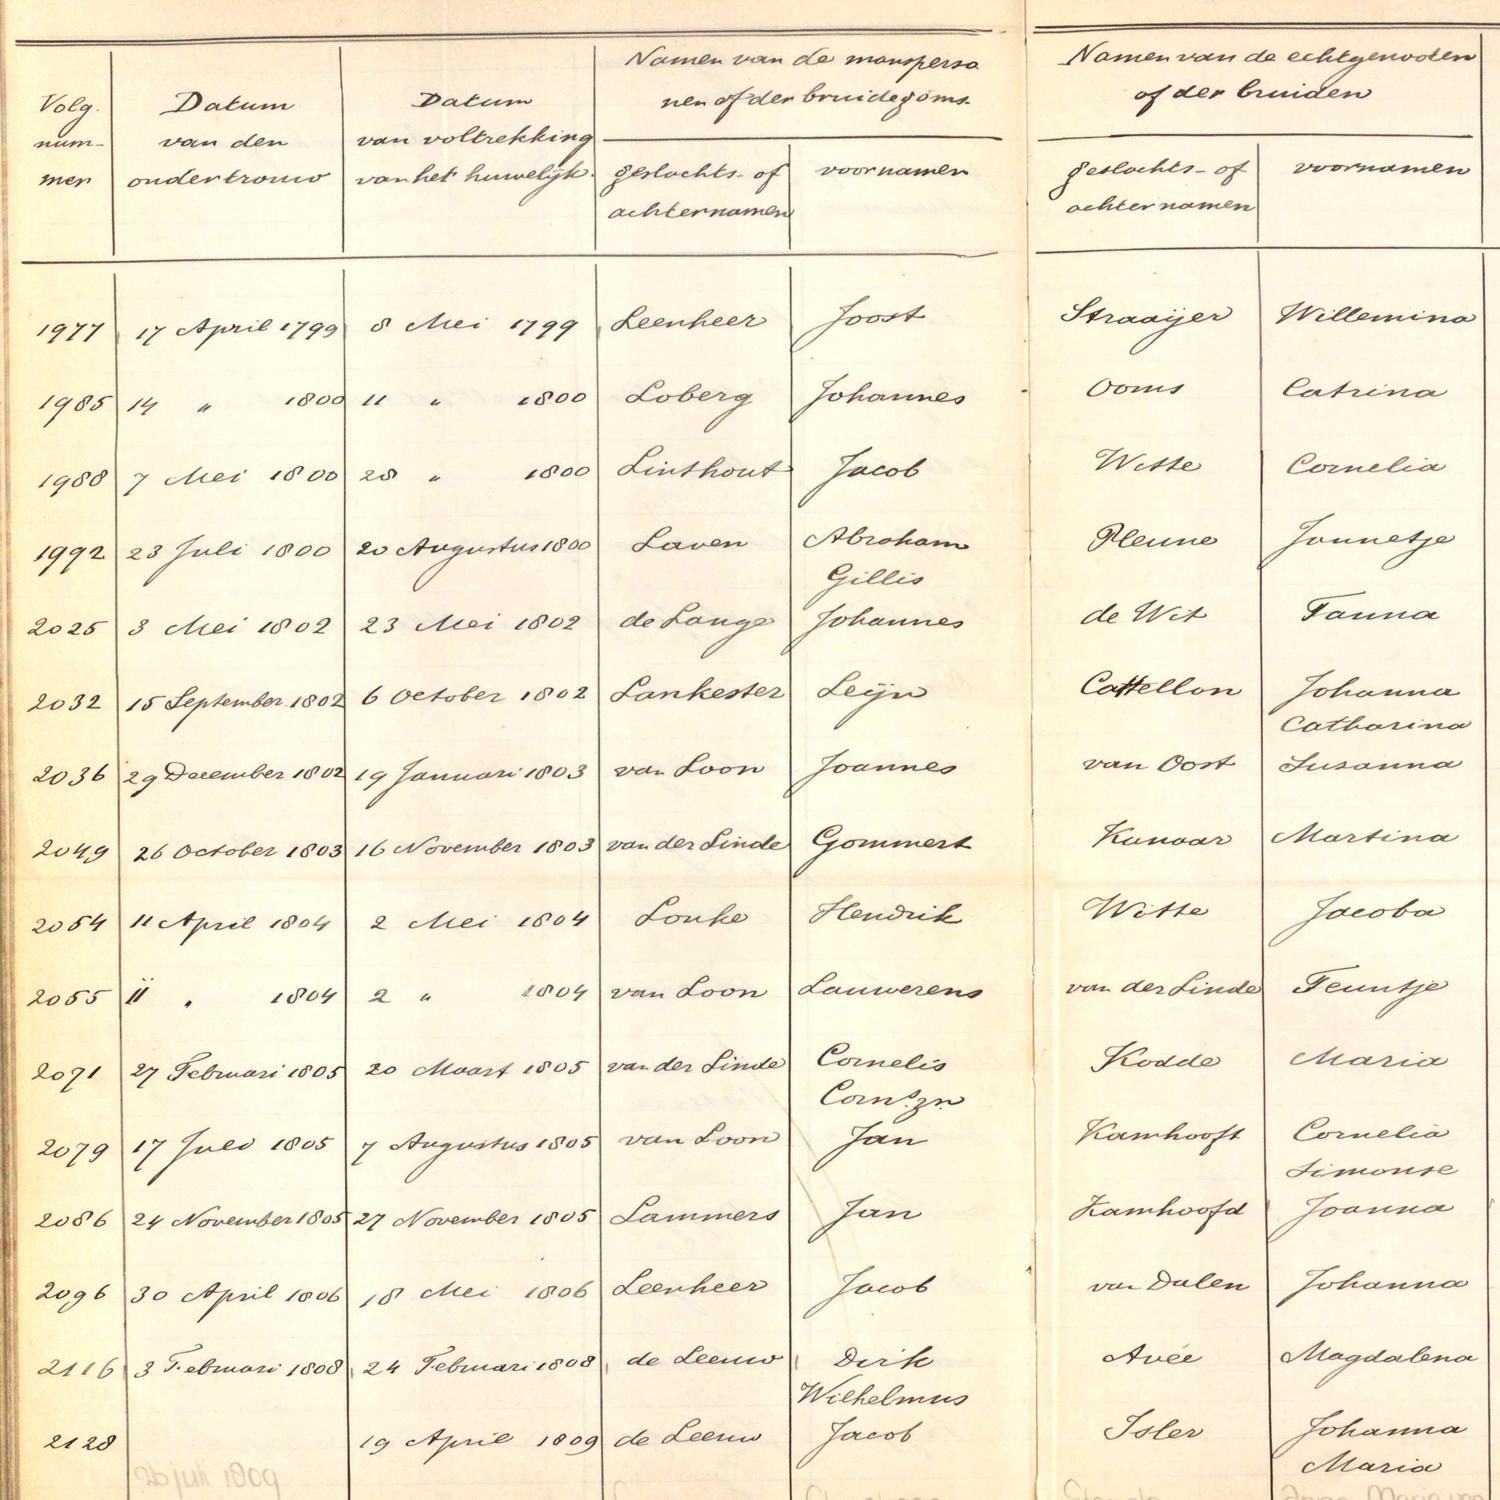 Namen van de manspersonen of der bruidegoms.
Namen van de echtgenooten of der bruiden
Volg-nummer
Datum van den ondertrouw
Datum van voltrekking van het huwelijk.
geslachts- of achternamen
voornamen
geslachts- of achternamen
voornamen
1977 17 April 1799 8 Mei 1799 Leenheer Joost Straaijer Willemina
1985 14 " 1800 11 " 1800 Loberg Johannes Ooms Catrina
1988 7 Mei 1800 28 " 1800 Linthout Jacob Witte Cornelia
1992 23 Juli 1800 20 Augustus 1800 Laven Abraham Pleune Jannetje
Gillis
2025 3 Mei 1802 23 Mei 1802 de Lange Johannes de Wit Tanna
2032 15 September 1802 6 October 1802 Lankester Leijn Cattellon Johanna
Catharina
2036 29 December 1802 19 Januari 1803 van Loon Joannes van Oost Susanna
2049 26 October 1803 16 November 1803 van der Linde Gommert Kanaar Martina
2054 11 April 1804 2 Mei 1804 Louke Hendrik Witte Jacoba
2055 11 " 1804 2 " 1804 van Loon Lauwerens van der Linde Teuntje
2071 27 Februari 1805 20 Maart 1805 van der Linde Cornelis Kodde Maria
Corns. zn.
2079 17 Juli 1805 7 Augustus 1805 van Loon Jan Kamhooft Cornelia
Simonse
2086 24 November 1805 27 November 1805 Lammers Jan Kamhoofd Joanna
2096 30 April 1806 18 Mei 1806 Leenheer Jacob van Dalen Johanna
2116 3 Februari 1808 24 Februari 1808 de Leeuw Dirk Avée Magdalena
Wilhelmus
2128 19 April 1809 de Leeuw Jacob Isler Johanna
Maria
26 juli 1809